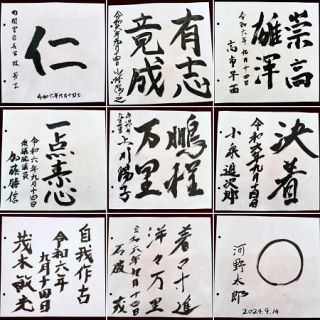 仁
内閣官房長官 林 芳正
令和六年九月十四日
有志
竟成
令和六年九月十四日 小林鷹之
崇高
雄渾
令和六年 九月十四日
高市早苗
一点素心
令和六年九月十四日
衆議院議員
加藤勝信
鵬程
万里
上川陽子
決着
令和六年九月十四日
小泉進次郎
自我作古
令和六年
九月十四日
茂木敏充
着々寸進
洋々万里
令和六年九月十四日
石破 茂
河野太郎
2024.9.14